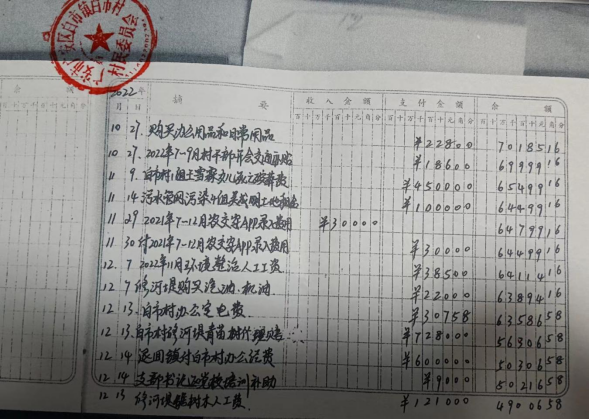 广安市 安区白市镇白市村
村民委员会
2022年
月 日 摘 要 收入金额 支付金额 余 额
10 27. 购买办公用品和日常用品 ¥22800 7018516
10 27. 2022年7-9月村干部开会交通补贴 ¥18600 6999916
11 9. 白市村1组 ¥450000 6549916
11 14 污水管网污染 组 土地租金 ¥100000 6449916
11 29 2021年7-12月农交宗APP录入费用 ¥30000 6479916
11 30 付2021年7-12月农交宗APP录入费用 ¥30000 6449916
12. 7 2022年11月环境整治人工费 ¥38500 6411416
12 9 修河堤购买汽油.机油 ¥22000 6389416
12. 13. 白市村办公室电费 ¥30758 6358658
12 13. 白市村修河堤青苗树竹赔 ¥728000 5630658
12. 14 返回镇付白市村办公经费 ¥600000 5030658
12. 14 支部书记 党校培训补助 ¥9000 5021658
12 15 修河堤 树木人工费 ¥121000 4900658